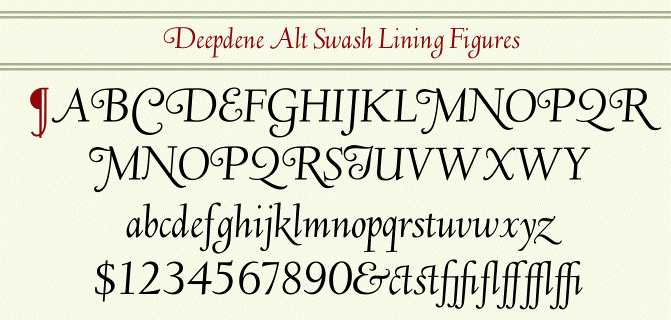 Deepdene Alt Swash Lining Figures
¶ABCDEFGHIJKLMNOPQR
MNOPQRSTUVWXWY
abcdefghijklmnopqrstuvwxyz
$1234567890&ctstfjfiflfffflffi